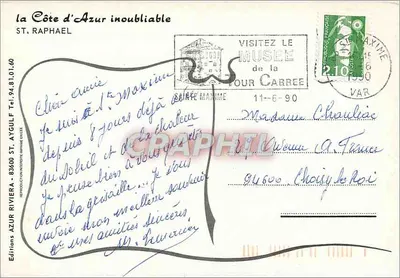 la Côte d'Azur inoubliable
ST. RAPHAEL
VISITEZ LE
MUSEE
de la
TOUR CARREE
SAINTE MAXIME
11-6-90
MAXIME
1990
VAR
2,10
Chère amie
Je suis à Ste Maxime
depuis 8 jours déjà
du soleil et de la chaleur
Je pense bien à vous
dans la grisaille... Je vous
envoie mon meilleur souvenir
et mes amitiés sincères
Madame
A. France
94600. Choisy le Roi
Editions AZUR RIVIERA - 83600 ST. AYGULF Tel. 94.81.01.60
CARAPHIL